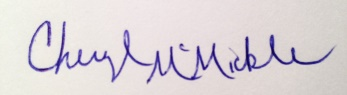 Cheryl McMickle